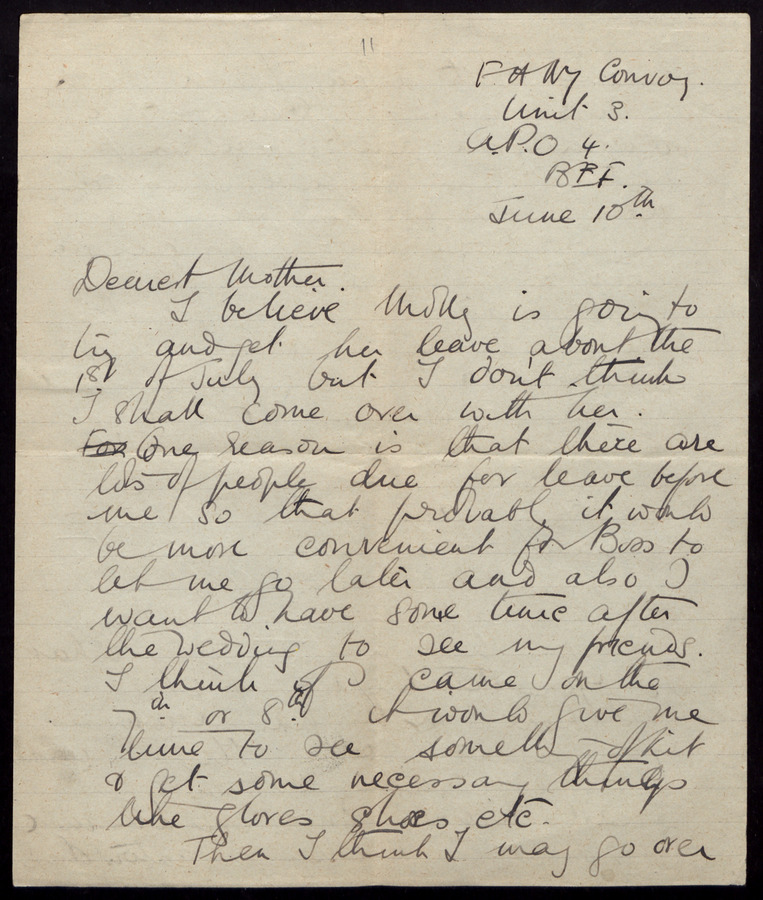 11
F A N Y Convoy.
Unit 3.
A.P.O 4.
B E F.
June 10th.
Dearest Mother.
I believe Molly is going to
try and get her leave about the
1st of July but I don't think
I shall come over with her.
For One reason is that there are
lots of people due for leave before
me so that probably it would
be more convenient for Boss to
let me go later and also I
want to have some time after
the wedding to see my friends.
I think if I came on the
7th or 8th it would give me
time to see something of Kit
& get some necessary things
like gloves shoes etc.
Then I think I may go over